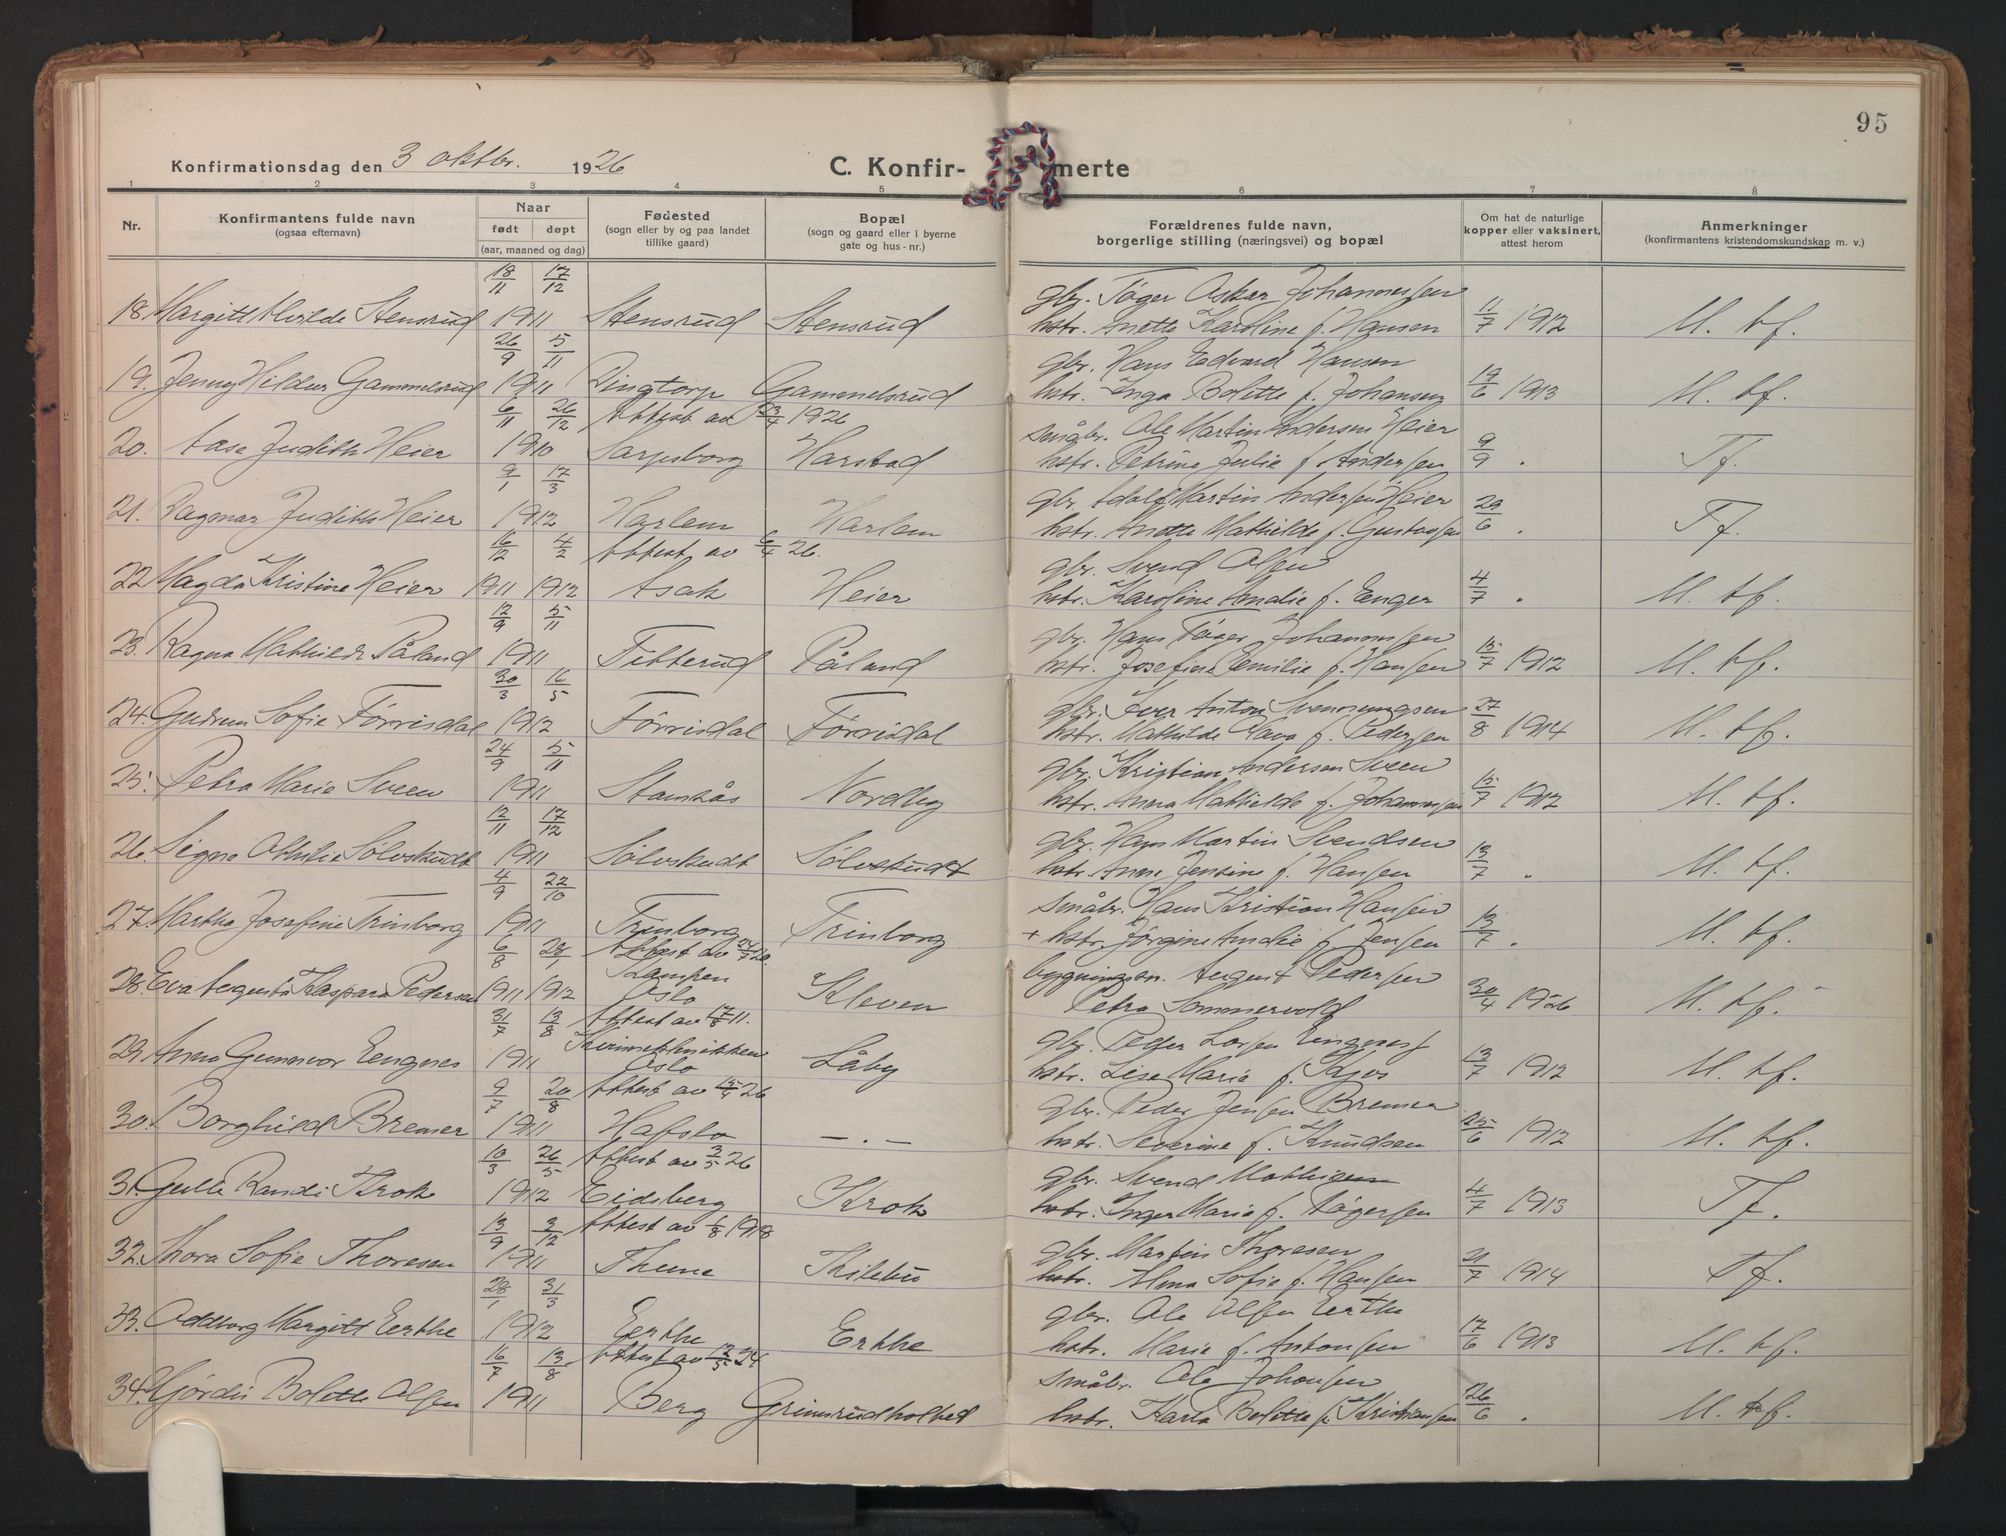 95
Konfirmationsdag den 3 oktbr. 1926
C. Konfir- merte
1 2 3 4 5 6 7 8
Nr.
Konfirmantens fulde navn
(ogsaa efternavn)
Naar
født døpt
(aar, maaned og dag)
Fødested
(sogn eller by og paa landet
tillike gaard)
Bopæl
(sogn og gaard eller i byerne
gate og hus-nr.)
Forældrenes fulde navn,
borgerlige stilling (næringsvei) og bopæl
Om hat de naturlige
kopper eller vaksinert,
attest herom
Anmerkninger
(konfirmantens kristendomskundskap m. v.)
18/11 17/12 gbr. Tøger Oskar Johannessen
18. Margitt Alvilde Stensrud 1911 Stensrud Stensrud hstr. Anette Karoline f. Hansen 11/7 1912 M. tf.
26/9 5/11 gbr. Hans Edvard Hansen
19. Jenny Hildur Gammelsrud 1911 Gammelsrud hstr. Inga Bolette f. Johansen 19/6 1913 M. tf.
6/11 26/12 Attest av 23/4 1926 småbr. Ole Martin Andersen Heier
20. Aase Judith Heier 1910 Sarpsborg Harstad hstr. Petrine Julie f. Andersen 9/9 " Tf.
9/1 17/3 gbr. Adolf Martin Andersen Heier
21. Dagmar Judith Heier 1912 Harlem Harlem hstr. Anette Mathilde f. Gustavsen 29/6 " Tf.
16/12 4/2 Attest av 6/4 26. gbr. Svend Olsen
22. Magda Kristine Heier 1911 1912 Asak Heier hstr. Karoline Amalie f. Enger 4/7 " M. tf.
12/9 5/11 gbr. Hans Tøger Johannessen
23. Ragna Mathilde Påland 1911 Titterud Påland hstr. Josefine Emilie f. Hansen 15/7 1912 M. tf.
30/3 16/5 gbr. Iver Anton Svenningsen
24. Gudrun Sofie Førrisdal 1912 Førrisdal Førrisdal hstr. Mathilde f. Pedersen 27/8 1914 M. tf.
24/9 5/11 gbr. Kristian Andersen Sveen
25. Petra Marie Sveen 1911 Stamsås Nordby hstr. Anna Mathilde f. Johannessen 15/7 1912 M. tf.
12/11 17/12 gbr. Hans Martin Svendsen
26. Signe Othilie Sølvskudt 1911 Sølvskudt Sølvskudt hstr. Anne Jensine f. Hansen 13/7 " M. tf.
4/9 22/10 småbr. Hans Kristian Hansen
27. Martha Josefine Trinborg 1911 Trinborg Trinborg + hstr. Jørgine Amalie f. Jensen 13/7 " M. tf.
6/8 28/1 Attest av bygningssn. August Pedersen
28. Eva Augusta Kaspara Pedersen 1911 1912 Kampen Oslo Kleven Petra Sommervold 30/4 1926 M. tf.
31/7 13/8 Attest av 17/8 11. gbr. Peder Larsen Engnes
29. Anna Gunnvor Engnes 1911 Oslo Låby hstr. Lise Marie f. 13/7 1912 M. tf.
9/7 20/8 Attest av 15/4 26 gbr. Peder Jensen Bremer
30. Borghild Bremer 1911 Hafslo — . — hstr. Severine f. Knudsen 25/6 1912 M. tf.
10/3 26/5 Attest av 3/5 26 gbr. Svend Mathisen
31. Gulle Randi Krok 1912 Eidsberg Krok hstr. Inger Marie f. Tøgersen 4/7 1913 Tf.
13/9 3/12 Attest av 1/8 1918 gbr. Martin Thoresen
32. Thora Sofie Thoresen 1911 Thune Kilebu hstr. Alma Sofie f. Hansen 21/7 1914 Tf.
28/1 31/3 gbr. Ole Olsen Erthe
33. Oddborg Margitt Eerthe 1912 Eerthe Erthe hstr. Marie f. Antonsen 17/6 1913 M. tf.
16/7 13/8 Attest av 12/5 24 småbr. Ole Johansen
34. Hjørdis Bolette Olsen 1911 Berg Grimsrudholtet hstr. Karla Bolette f. Kristiansen 26/6 " M. tf.